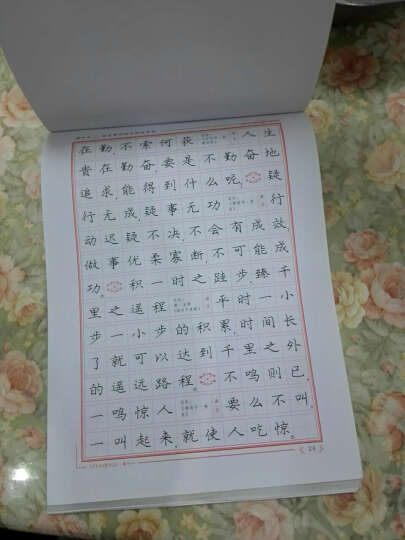 在勤，不索何获 人生
贵在勤奋，要是不勤奋地
追求，能得到什么呢， 疑
行无成，疑事无功 行
动迟疑不决，不会有成效，
做事优柔寡断，不可能成
功。 积一时之跬步，臻千
里之遥程 平时一小
步一小步的积累，时间长
了就可以达到千里之外
的遥远路程。 不鸣则已，
一鸣惊人 要么不叫，
一叫起来，就使人吃惊。
24